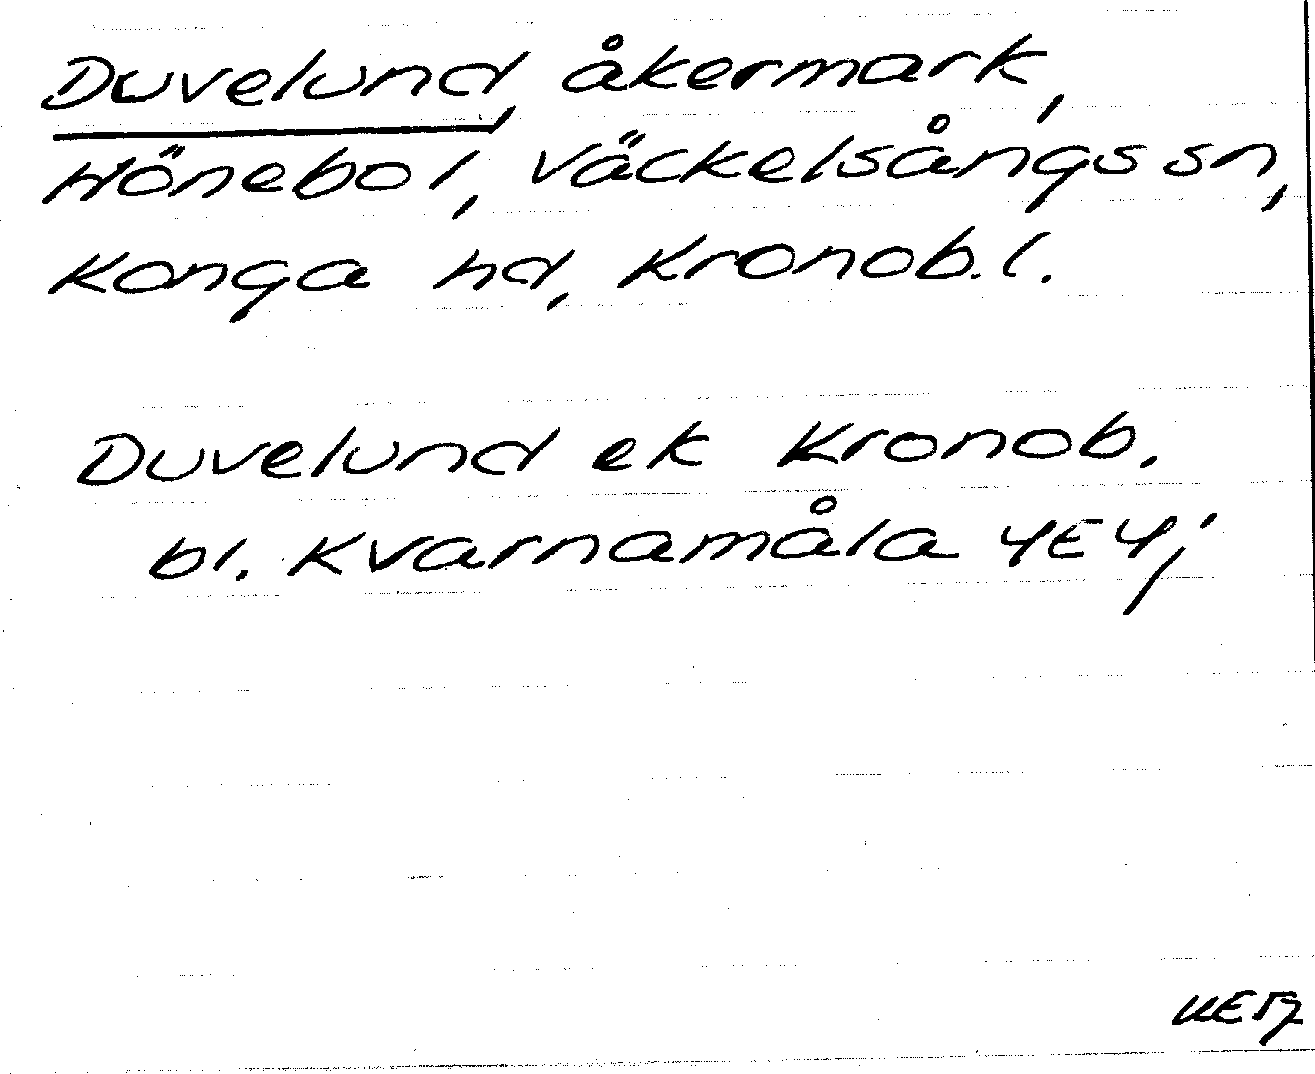 Duvelund, åkermark,
Hönebol, Väckelsångs sn,
Konga hd, Kronob. l.
Duvelund ek Kronob.
bl. Kvarnamåla 4E4j